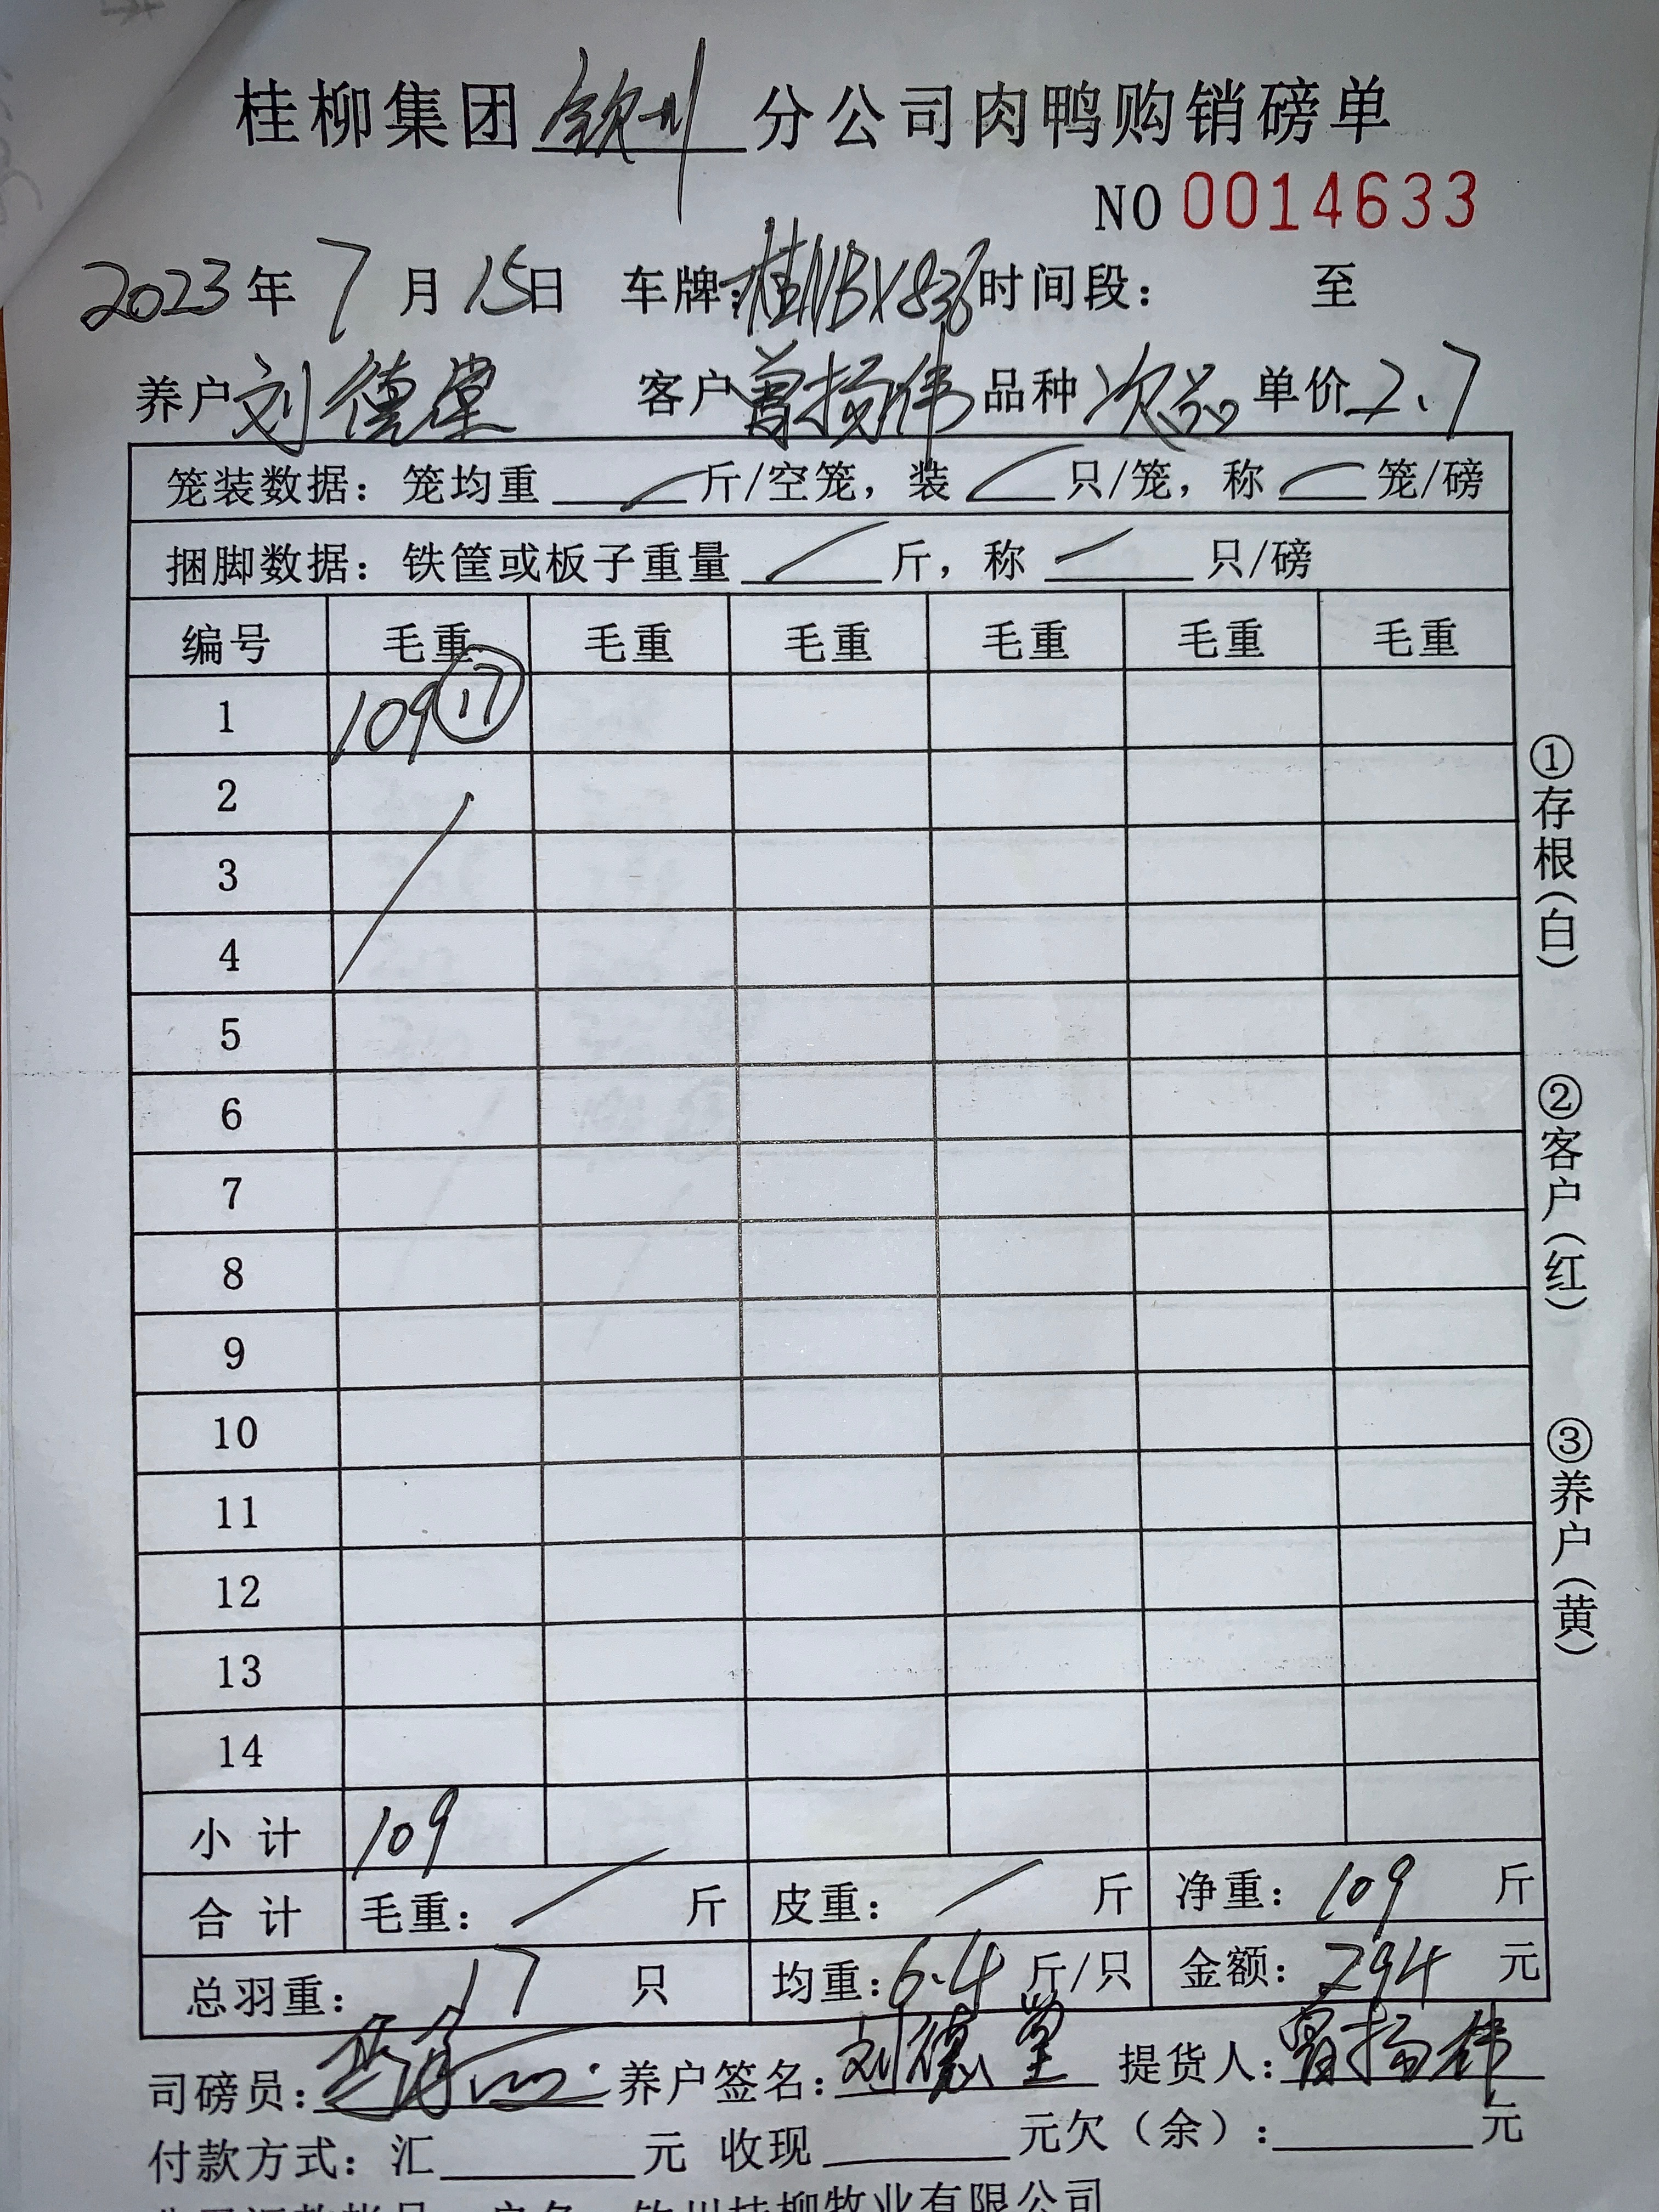 桂柳集团 钦州 分公司肉鸭购销磅单
NO 0014633
2023年 7月 15日 车牌:桂NBX836 时间段: 至
养户 刘德堂 客户 曾扬伟 品种 次品 单价 2.7
笼装数据: 笼均重 / 斤/空笼, 装 / 只/笼, 称 / 笼/磅
捆脚数据: 铁筐或板子重量 / 斤, 称 / 只/磅
编号 毛重 毛重 毛重 毛重 毛重 毛重
1 109 ⑰
2
3
4
5
6
7
8
9
10
11
12
13
14
小 计 109
合 计 毛重: / 斤 皮重: / 斤 净重: 109 斤
总羽重: 17 只 均重: 6.4 斤/只 金额: 294 元
司磅员: 养户签名: 刘德堂 提货人: 曾扬伟
付款方式: 汇 元 收现 元欠(余): 元
钦州桂柳牧业有限公司
①存根(白)
②客户(红)
③养户(黄)